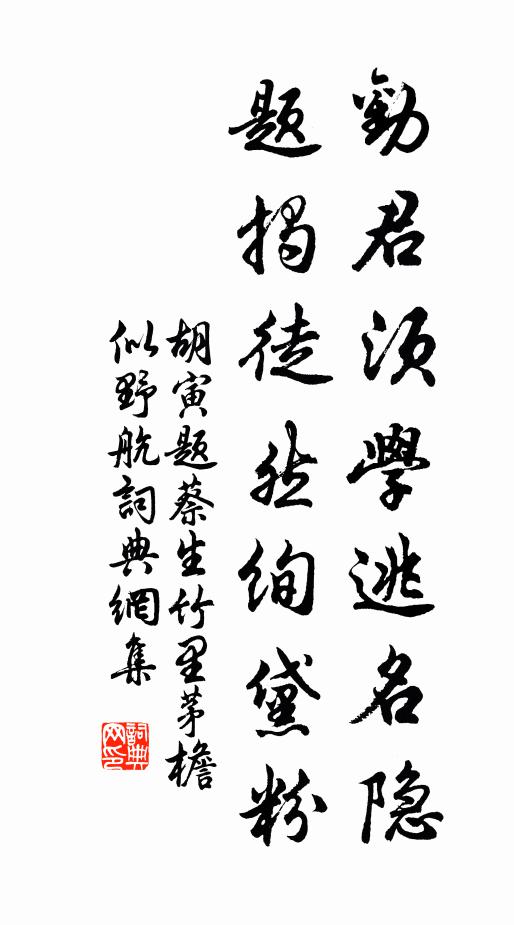 勸君須學逃名隐
題揭徒然絢黛粉
胡寅題蔡生竹里茅檐
似野航詞典網集
詞典网印